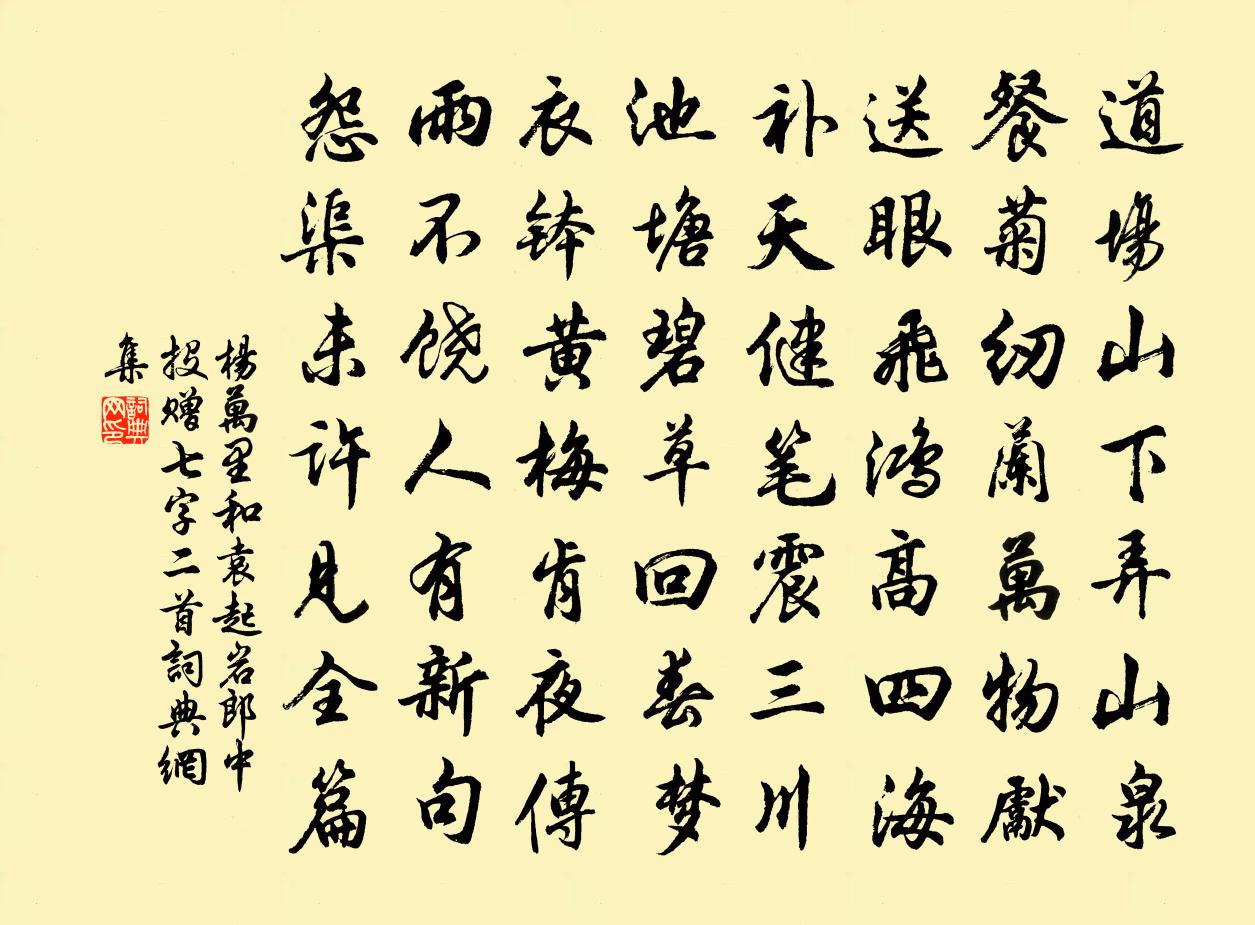 道場山下弄山泉
餐菊紉蘭萬物獻
送眼飛鴻高四海
补天健笔震三川
池塘碧草回春梦
衣钵黄梅肯夜傳
雨不饶人有新句
怨渠未许見全篇
楊萬里和袁起岩郎中
投赠七字二首詞典網
集
詞典網印